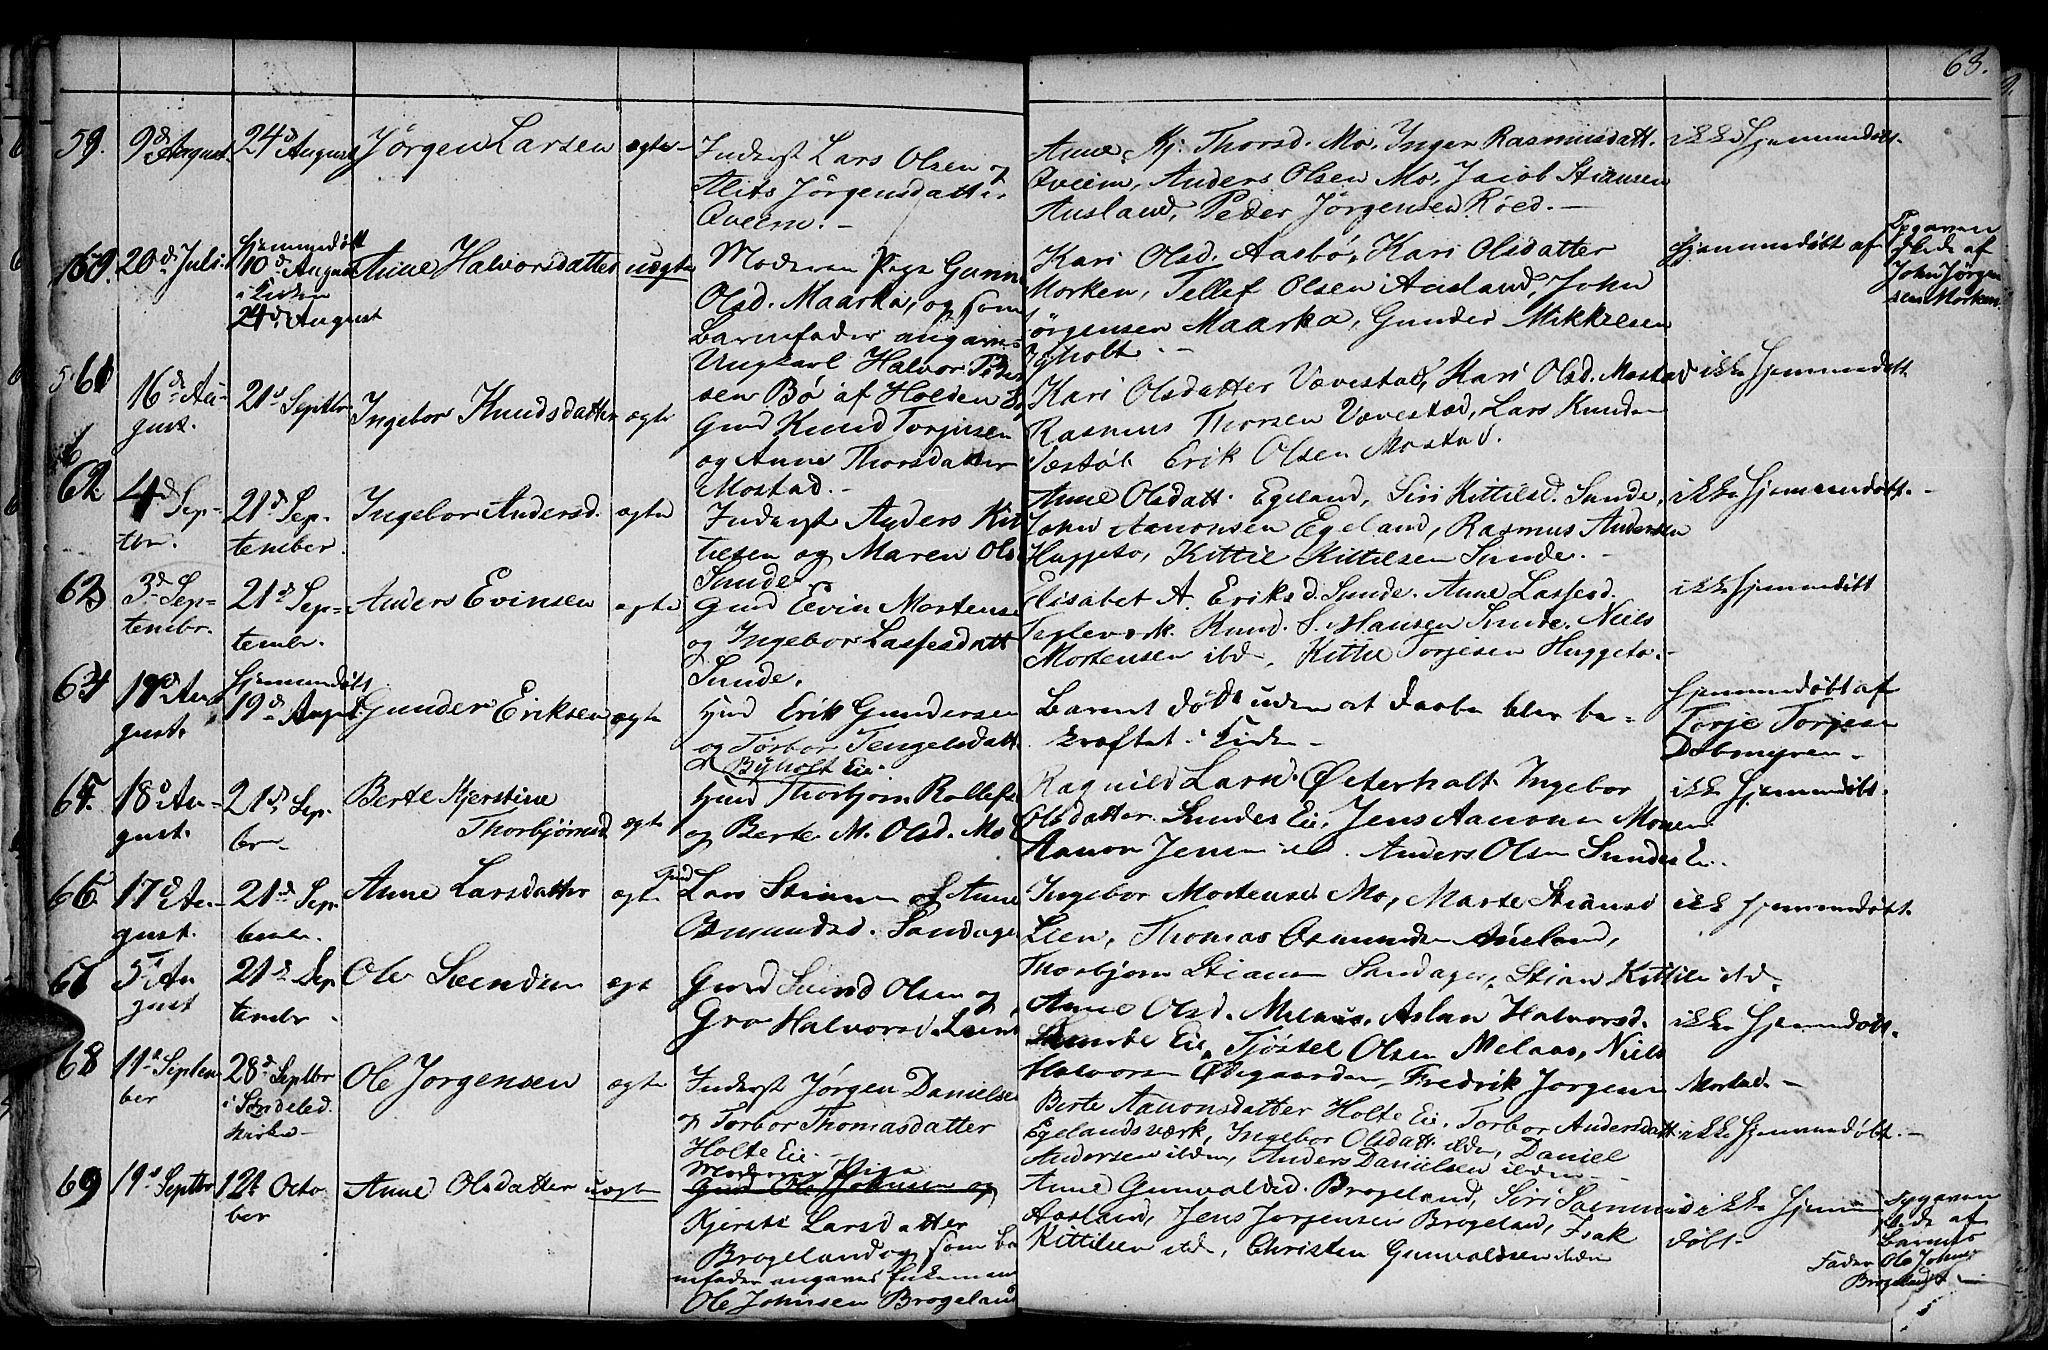 68.
59. 9d August 24d August Jörgen Larsen ægte
Inderst Lars Olsen og
Alits Jörgensdatter
Qveim.
Anne Kj. Thorsd. Mo, Inger Rasmusdatt.
Qveim, Anders Olsen Mo, Jacob Stiansen
Ausland, Peder Jörgensen Röed.
ikke hjemmedøbt.
60. 20d Juli hjemmedøbt
10d August
i Kirken
24d August
Anne Halvorsdatter uægte
Moderen Pige Gunn
Olsd. Maarka, og som
Barnefader angaves
Ungkarl Halvor
sen Bö af Holden
Kari Olsd. Aasbö, Kari Olsdatter
Morken, Tellef Olsen Ausland, John
Jörgensen Maarka, Gunder Mikkelsen
hjemmedøbt af
Opgaven
skede af
John Jörgen
sen Morken
61 16d Au-
gust.
21d Septbr Ingebor Knudsdatter ægte
Gmd Knud Torjusen
og Anne Thorsdatter
Mostad.
Kari Olsdatter Vævestad, Kari Olsd. Mostad
Rasmus Thorsen Vævestad, Lars Knudsen
Væstøl Erik Olsen Mostad.
ikke hjemmedøbt
62 4d Sep-
tbr.
21d Sep-
tember.
Ingebor Andersd. ægte
Inderst Anders Kit
tilsen og Maren Ols
Sunde
Anne Olsdatt. Egeland, Siri Kittilsd. Sunde,
John Aanonsen Egeland, Rasmus Andersen
Huggeto, Kittil Kittilsen Sunde.
ikke hjemmedøbt.
63 3d Sep-
tembr.
21d Sep-
tembr.
Anders Evinsen ægte
Gmd Eevin Mortense
og Ingebor Lassesdatt
Sunde.
Elisabet A. Eriksd. Sunde. Anne Lassesd.
Tegleværk. Knud S. Hansen Sunde. Niels
Mortensen ibd, Kittil Torjesen Huggeto.
ikke hjemmedøbt
64 19d Au-
gust.
hjemmedøbt
19d August
Gunder Eriksen ægte
Gmd Erik Gundersen
og Törbor Tengelsdatt
Byholt Eie.
Barnet døde uden at Daaben blev be-
kræftet i Kirken
hjemmedøbt af
Torje Torjesen
Dobmyren
65. 18d Au-
gust.
21d Sep-
br
Berte Kjerstine
Thorbjörnsd ægte
Gmd Thorbjørn Rollefs
og Berte M. Olsd. Mo
Ragnild Larsd. Østerholt. Ingebor
Olsdatter. Sundes Eie, Jens Aanonsen Moen
Aanon Jensen ibd. Anders Olsen Sundes E.
ikke hjemmedøbt.
66. 17d Au-
gust.
21d Sep-
tembr.
Anne Larsdatter ægte
Gmd Lars Stiansen & Anne
Osmundsd. Sandager
Ingebor Mortensd. Mo, Marte Stiansd
Lien, Thomas Osmundsen Ausland,
Thorbjørn Stiansen Sandager, Stian Kittilsen ibd.
ikke hjemmedøbt.
67 5d Au
gust
21d Sep
tembr
Ole Svendsen ægte
Gmd Svend Olsen og
Gro Halvorsd.
Anne Olsd. Melaas. Aslau Halvorsd.
Eie, Tjöstel Olsen Melaas, Niels
Halvorsen Ødegaarden, Fredrik Jorgensen Mostad.
ikke hjemmedøbt.
68 11d Septem
ber
28d Septbr
i Søndeled
Kirke
Ole Jorgensen ægte
Inderst Jörgen Danielse
og Torbor Thomasdatter
Holte Eie.
Berte Aanonsdatter Holte Eie. Torbor Andersdatt
Egelandsværk, Ingebor Olsdatt. ibdn, Daniel
Andersen ibdm, Anders Danielsen ibdm
ikke hjemmedøbt.
69 19d Septbr 12t Octo
ber
Anne Olsdatter uægte
Moderen Pige
Gmd Ole Johnsen og
Kjersti Larsdatter
Brogeland og som ba
rnefader angaves Enkemand
Ole Johnsen Brogeland
Anne Gunvaldsd. Brogeland, Siri Sæmundsd
Aasland, Jens Jorgensen Brogeland, Isak
Kittilsen ibd, Christen Gunvaldsen ibdm
ikke hjemme
døbt.
Opgaven
skede af
Barnets
Fader Ole Johns.
Brogeland